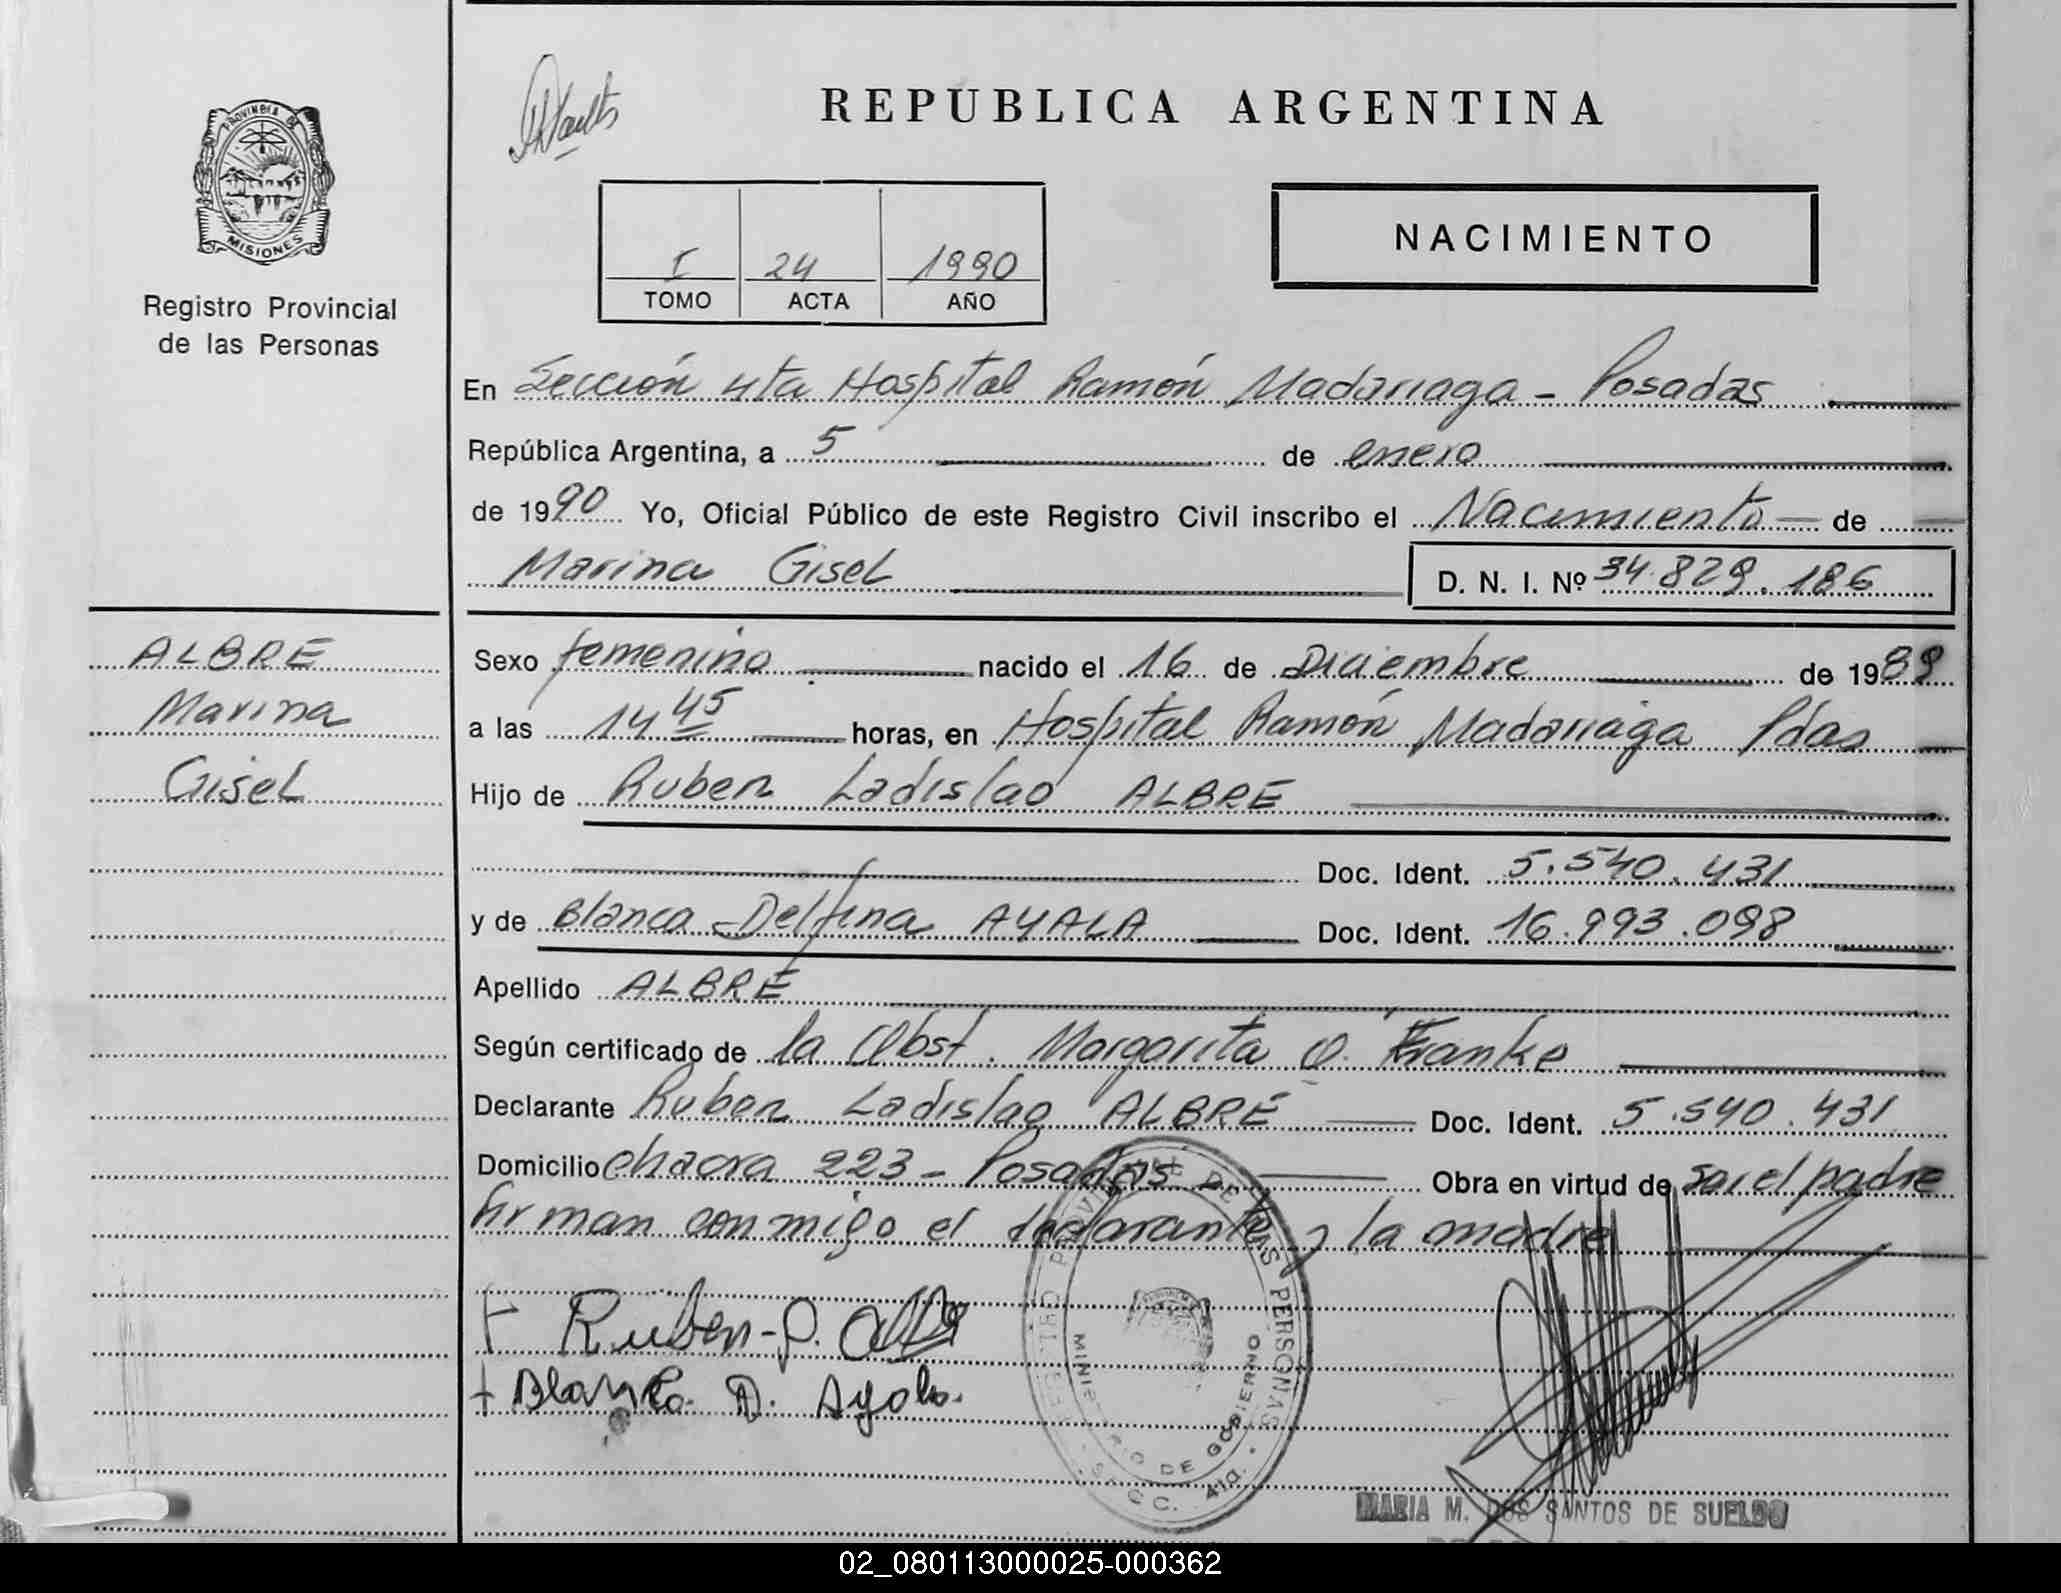 REPÚBLICA ARGENTINA
PROVINCIA DE
MISIONES
Registro Provincial
de las Personas
NACIMIENTO
I 24 1990
TOMO ACTA AÑO
En Sección 4ta Hospital Ramón Madariaga - Posadas
República Argentina, a 5 de enero
de 1990 Yo, Oficial Público de este Registro Civil inscribo el Nacimiento de
Marina Gisel D. N. I. Nº 34.829.186
ALBRE
Marina
Gisel
Sexo femenino nacido el 16 de Diciembre de 1989
a las 14 45 horas, en Hospital Ramón Madariaga Pdas
Hijo de Ruben Ladislao ALBRE
Doc. Ident. 5.540.431
y de Blanca Delfina AYALA Doc. Ident. 16.993.098
Apellido ALBRE
Según certificado de la Obst. Margarita O. Franke
Declarante Ruben Ladislao ALBRE Doc. Ident. 5.540.431
Domicilio chacra 223 - Posadas Obra en virtud de ser el padre
firman conmigo el declarante y la madre
Ruben
Blanca D. Ayala.
PROVINCIAL DE LAS PERSONAS
MINISTERIO DE GOBIERNO
SECC. 4ta.
MARIA M. DOS SANTOS DE SUELDO
02_080113000025-000362